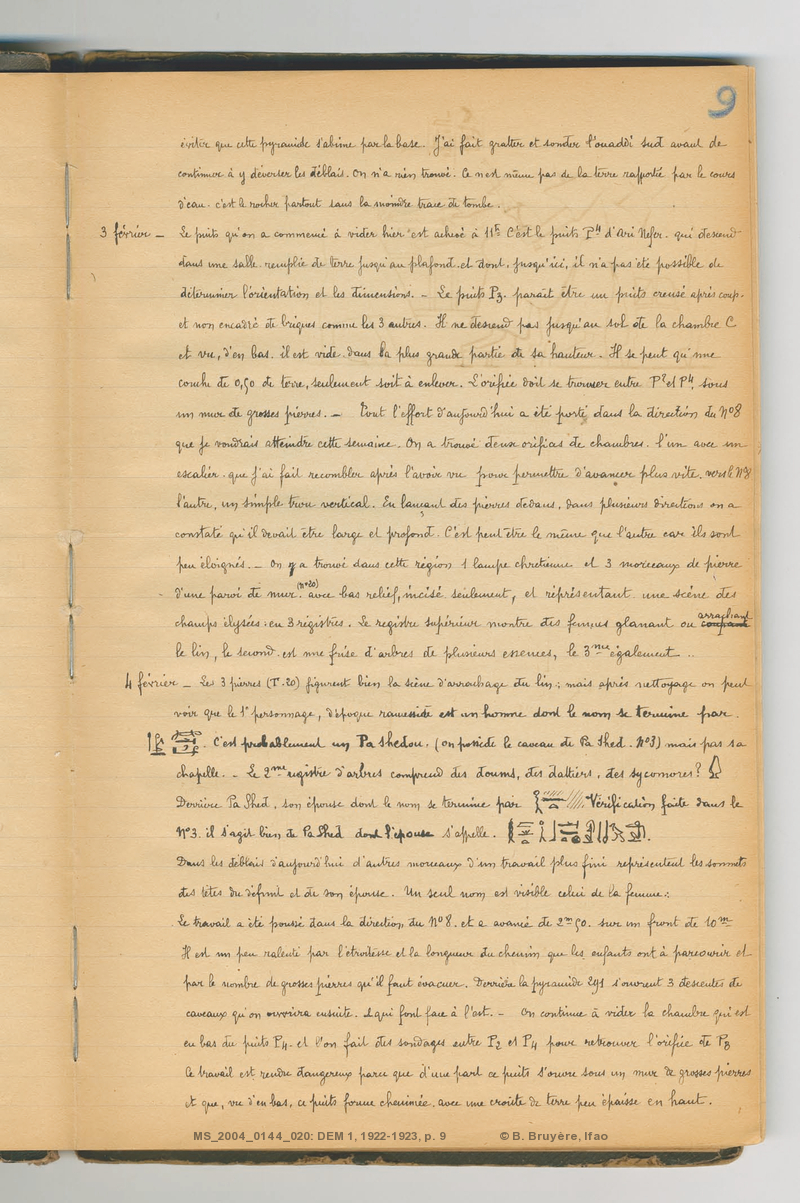 9
éviter que cette pyramide s'abîme par la base. J'ai fait gratter et sonder l'ouaddi sud avant de
continuer à y déverser les déblais. On n'a rien trouvé. Ce n'est même pas de la terre rapportée par le cours
d'eau. c'est le rocher partout sans la moindre trace de tombe.
3 février — Le puits qu'on a commencé à vider hier est achevé à 11h. C'est le puits P4 d'Ari Nefer. qui descend
dans une salle. remplie de terre jusqu'au plafond. et dont, jusqu'ici, il n'a pas été possible de
déterminer l'orientation et les dimensions. – Le puits P3. paraît être un puits creusé après coup.
et non encadré de briques comme les 3 autres. Il ne descend pas jusqu'au sol de la chambre C
et vu, d'en bas. il est vide dans la plus grande partie de sa hauteur. Il se peut qu'une
couche de 0,50 de terre, seulement soit à enlever. L'orifice doit se trouver entre P2 et P4, sous
un mur de grosses pierres. – Tout l'effort d'aujourd'hui a été porté dans la direction du N°8
que je voudrais atteindre cette semaine. On a trouvé deux orifices de chambres. l'un avec un
escalier. que j'ai fait recombler après l'avoir vu pour permettre d'avancer plus vite. vers le N°8
l'autre, un simple trou vertical. En lançant des pierres dedans, dans plusieurs directions on a
constaté qu'il devait être large et profond. C'est peut être le même que l'autre car ils sont
peu éloignés. – On y a trouvé dans cette région 1 lampe chrétienne et 3 morceaux de pierre
d'une paroi de mur. (n°20) avec bas relief, incisé seulement, et représentant une scène des
champs élysées. en 3 registres. Le registre supérieur montre des femmes glanant ou coupant arrachant
le lin, le second. est une frise d'arbres de plusieurs essences, le 3me également ..
4 février – Les 3 pierres (T. 20) figurent bien la scène d'arrachage du lin; mais après nettoyage on peut
voir que le 1er personnage, d'époque ramesside est un homme dont le nom se termine par.
C'est probablement un Pa Shedou. (on possède le caveau de Pa Shed. N°3) mais pas sa
chapelle. – Le 2me registre d'arbres comprend des doums, des dattiers, des sycomores?
Derrière Pa Shed, son épouse dont le nom se termine par Vérification faite dans le
N°3. il s'agit bien de Pa Shed dont l'épouse s'appelle.
Dans les déblais d'aujourd'hui d'autres morceaux d'un travail plus fini représentent les sommets
des têtes du défunt et de son épouse. Un seul nom est visible celui de la femme:.
Le travail a été poussé dans la direction du N°8. et a avancé de 2m50. sur un front de 10m
Il est un peu ralenti par l'étroitesse et la longueur du chemin que les enfants ont à parcourir et
par le nombre de grosses pierres qu'il faut évacuer. Derrière la pyramide 291 s'ouvrent 3 descentes de
caveaux qu'on ouvrira ensuite. et qui font face à l'est. – On continue à vider la chambre qui est
en bas du puits P4. et l'on fait des sondages entre P2 et P4 pour retrouver l'orifice de P3
Ce travail est rendu dangereux parce que d'une part ce puits s'ouvre sous un mur de grosses pierres
et que, vu d'en bas, ce puits forme cheminée, avec une croûte de terre peu épaisse en haut.
MS_2004_0144_020: DEM 1, 1922-1923, p. 9 © B. Bruyère, Ifao